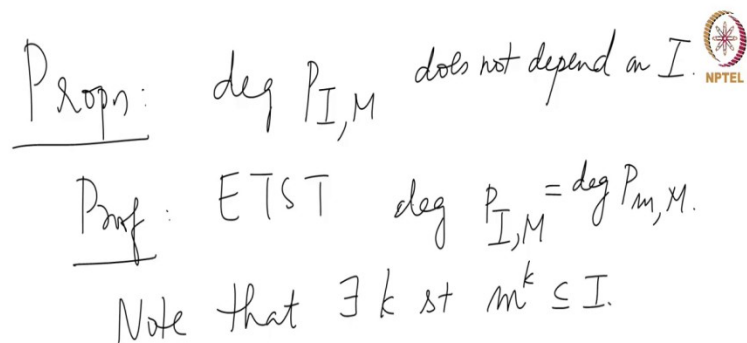 Propn: deg P_{I,M} does not depend on I.
NPTEL
Proof: ETST deg P_{I,M} = deg P_{m,M}.
Note that ∃ k st m^k ⊆ I.